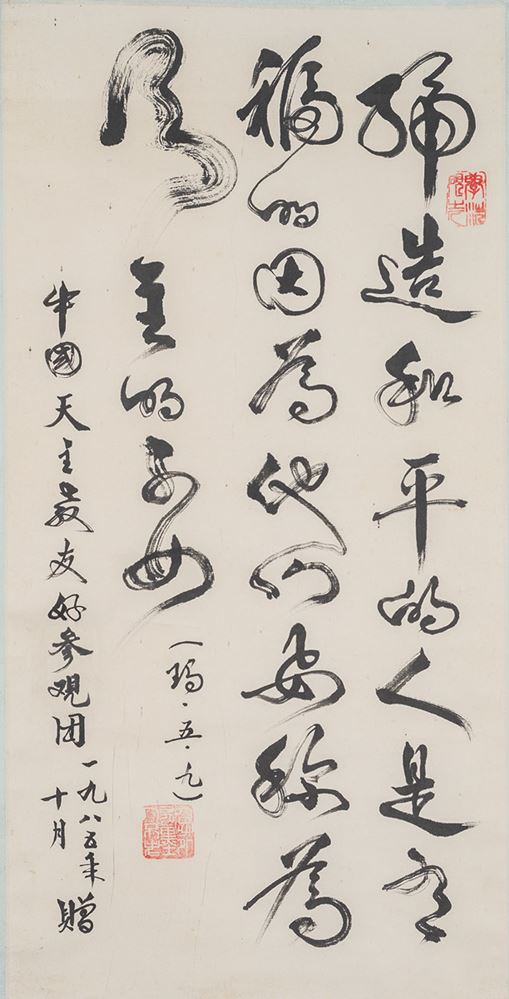 締造和平的人是有
福的因為他们要称為
天主的子女
(瑪·五·九)
中國天主教友好参观团一九八五年
十月 贈